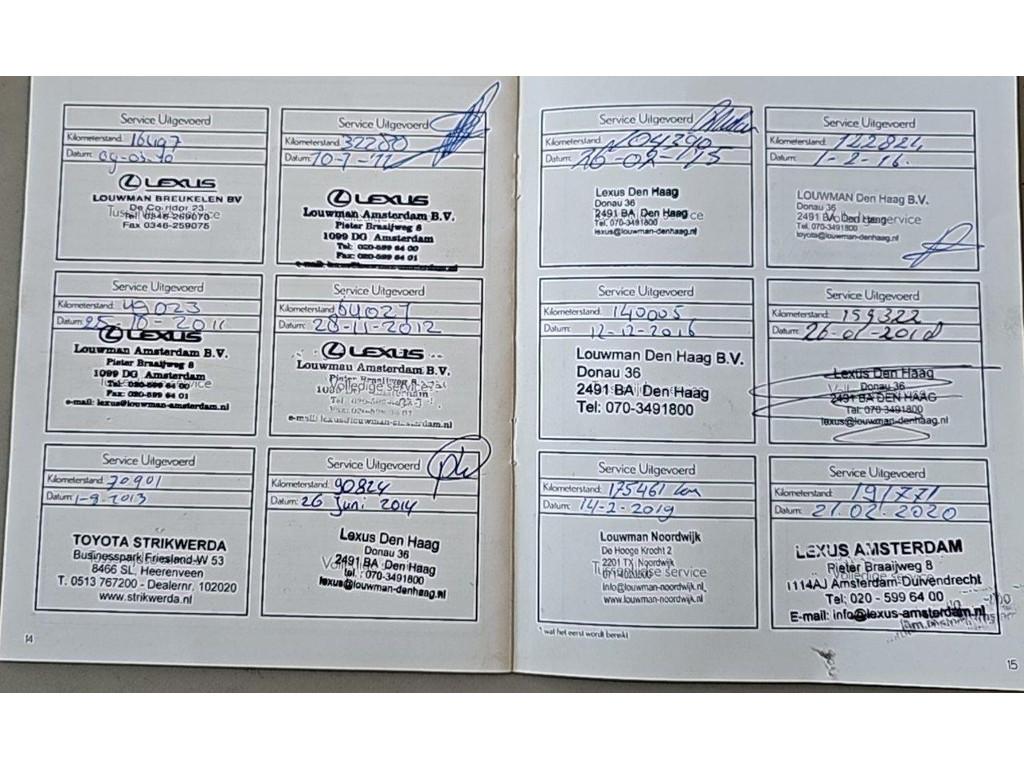 Service Uitgevoerd
Kilometerstand: 16497
Datum: 09-03-10
LEXUS
LOUWMAN BREUKELEN BV
De Corridor 23
Tel. 0346-259070
Fax 0346-259075
Service Uitgevoerd
Kilometerstand: 32280
Datum: 10-1-11
LEXUS
Louwman Amsterdam B.V.
Pieter Braaijweg 8
1099 DG Amsterdam
Tel: 020-599 64 00
Fax: 020-599 64 01
Service Uitgevoerd
Kilometerstand: 49023
Datum: 25-10-2011
LEXUS
Louwman Amsterdam B.V.
Pieter Braaijweg 8
1099 DG Amsterdam
Tel: 020-599 64 00
Fax: 020-599 64 01
e-mail: lexus@louwman-amsterdam.nl
Service Uitgevoerd
Kilometerstand: 64027
Datum: 28-11-2012
LEXUS
Louwman Amsterdam B.V.
Pieter Braaijweg 8
Volledige service
Service Uitgevoerd
Kilometerstand: 70901
Datum: 1-9-2013
TOYOTA STRIKWERDA
Businesspark Friesland-W 53
8466 SL Heerenveen
T. 0513 767200 - Dealernr. 102020
www.strikwerda.nl
Service Uitgevoerd
Kilometerstand: 90824
Datum: 26 Juni 2014
Lexus Den Haag
Donau 36
2491 BA Den Haag
tel.: 070-3491800
lexus@louwman-denhaag.nl
14
Service Uitgevoerd
Kilometerstand: 104390
Datum: 26-02-115
Lexus Den Haag
Donau 36
2491 BA Den Haag
Tel. 070-3491800
lexus@louwman-denhaag.nl
Service Uitgevoerd
Kilometerstand: 122824
Datum: 1-2-16.
LOUWMAN Den Haag B.V.
Donau 36
2491 BA Den Haag
Tel. 070-3491800
toyota@louwman-denhaag.nl
Service Uitgevoerd
Kilometerstand: 140005
Datum: 12-12-2016
Louwman Den Haag B.V.
Donau 36
2491 BA Den Haag
Tel: 070-3491800
Service Uitgevoerd
Kilometerstand: 159322
Datum: 26-01-2018
Lexus Den Haag
Donau 36
2491 BA DEN HAAG
Tal: 070-3491800
lexus@louwman-denhaag.nl
Service Uitgevoerd
Kilometerstand: 175461 km
Datum: 14-2-2019
Louwman Noordwijk
De Hooge Krocht 2
2201 TX Noordwijk
Tussentijdse service
info@louwman-noordwijk.nl
www.louwman-noordwijk.nl
* wat het eerst wordt bereikt
Service Uitgevoerd
Kilometerstand: 191771
Datum: 21.02.2020
LEXUS AMSTERDAM
Pieter Braaijweg 8
Volledige service
1114AJ Amsterdam-Duivendrecht
Tel: 020 - 599 64 00
E-mail: info@lexus-amsterdam.nl
15